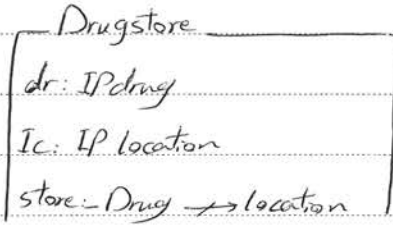 Drugstore
dr: ℙdrug
Ic: ℙ location
store: Drug ⇸ location